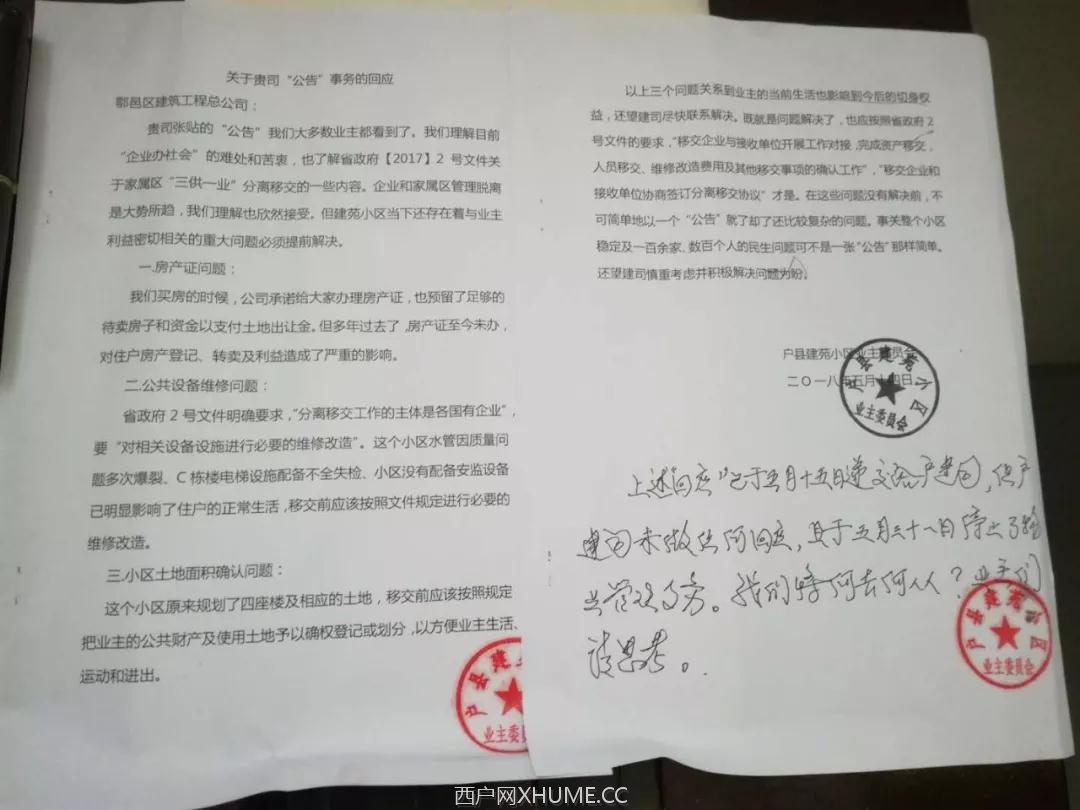 关于贵司“公告”事务的回应
鄠邑区建筑工程总公司：
贵司张贴的“公告”我们大多数业主都看到了。我们理解目前
“企业办社会”的难处和苦衷，也了解省政府【2017】2 号文件关
于家属区“三供一业”分离移交的一些内容。企业和家属区管理脱离
是大势所趋，我们理解也欣然接受。但建苑小区当下还存在着与业主
利益密切相关的重大问题必须提前解决。
一.房产证问题：
我们买房的时候，公司承诺给大家办理房产证，也预留了足够的
待卖房子和资金以支付土地出让金。但多年过去了，房产证至今未办，
对住户房产登记、转卖及利益造成了严重的影响。
二.公共设备维修问题：
省政府 2 号文件明确要求，“分离移交工作的主体是各国有企业”，
要“对相关设备设施进行必要的维修改造”。这个小区水管因质量问
题多次爆裂、C 栋楼电梯设施配备不全失检、小区没有配备安监设备
已明显影响了住户的正常生活，移交前应该按照文件规定进行必要的
维修改造。
三.小区土地面积确认问题：
这个小区原来规划了四座楼及相应的土地，移交前应该按照规定
把业主的公共财产及使用土地予以确权登记或划分，以方便业主生活、
运动和进出。
户县建苑
业主委员
以上三个问题关系到业主的当前生活也影响到今后的切身权
益，还望建司尽快联系解决。既就是问题解决了，也应按照省政府 2
号文件的要求，“移交企业与接收单位开展工作对接，完成资产移交，
人员移交、维修改造费用及其他移交事项的确认工作”，“移交企业和
接收单位协商签订分离移交协议”才是。在这些问题没有解决前，不
可简单地以一个“公告”就了却了还比较复杂的问题。事关整个小区
稳定及一百余家、数百个人的民生问题可不是一张“公告”那样简单。
还望建司慎重考虑并积极解决问题为盼。
户县建苑小区业主委员会
二〇一八年五月十四日
户县建苑小区
业主委员会
上述“回应”已于五月十五日递交给户建司，但户
建司未做任何回应，其于五月三十一日停止了物
业管理服务。我们将何去何从？业主们
请思考。
户县建苑小区
业主委员会
西户网XHUME.CC